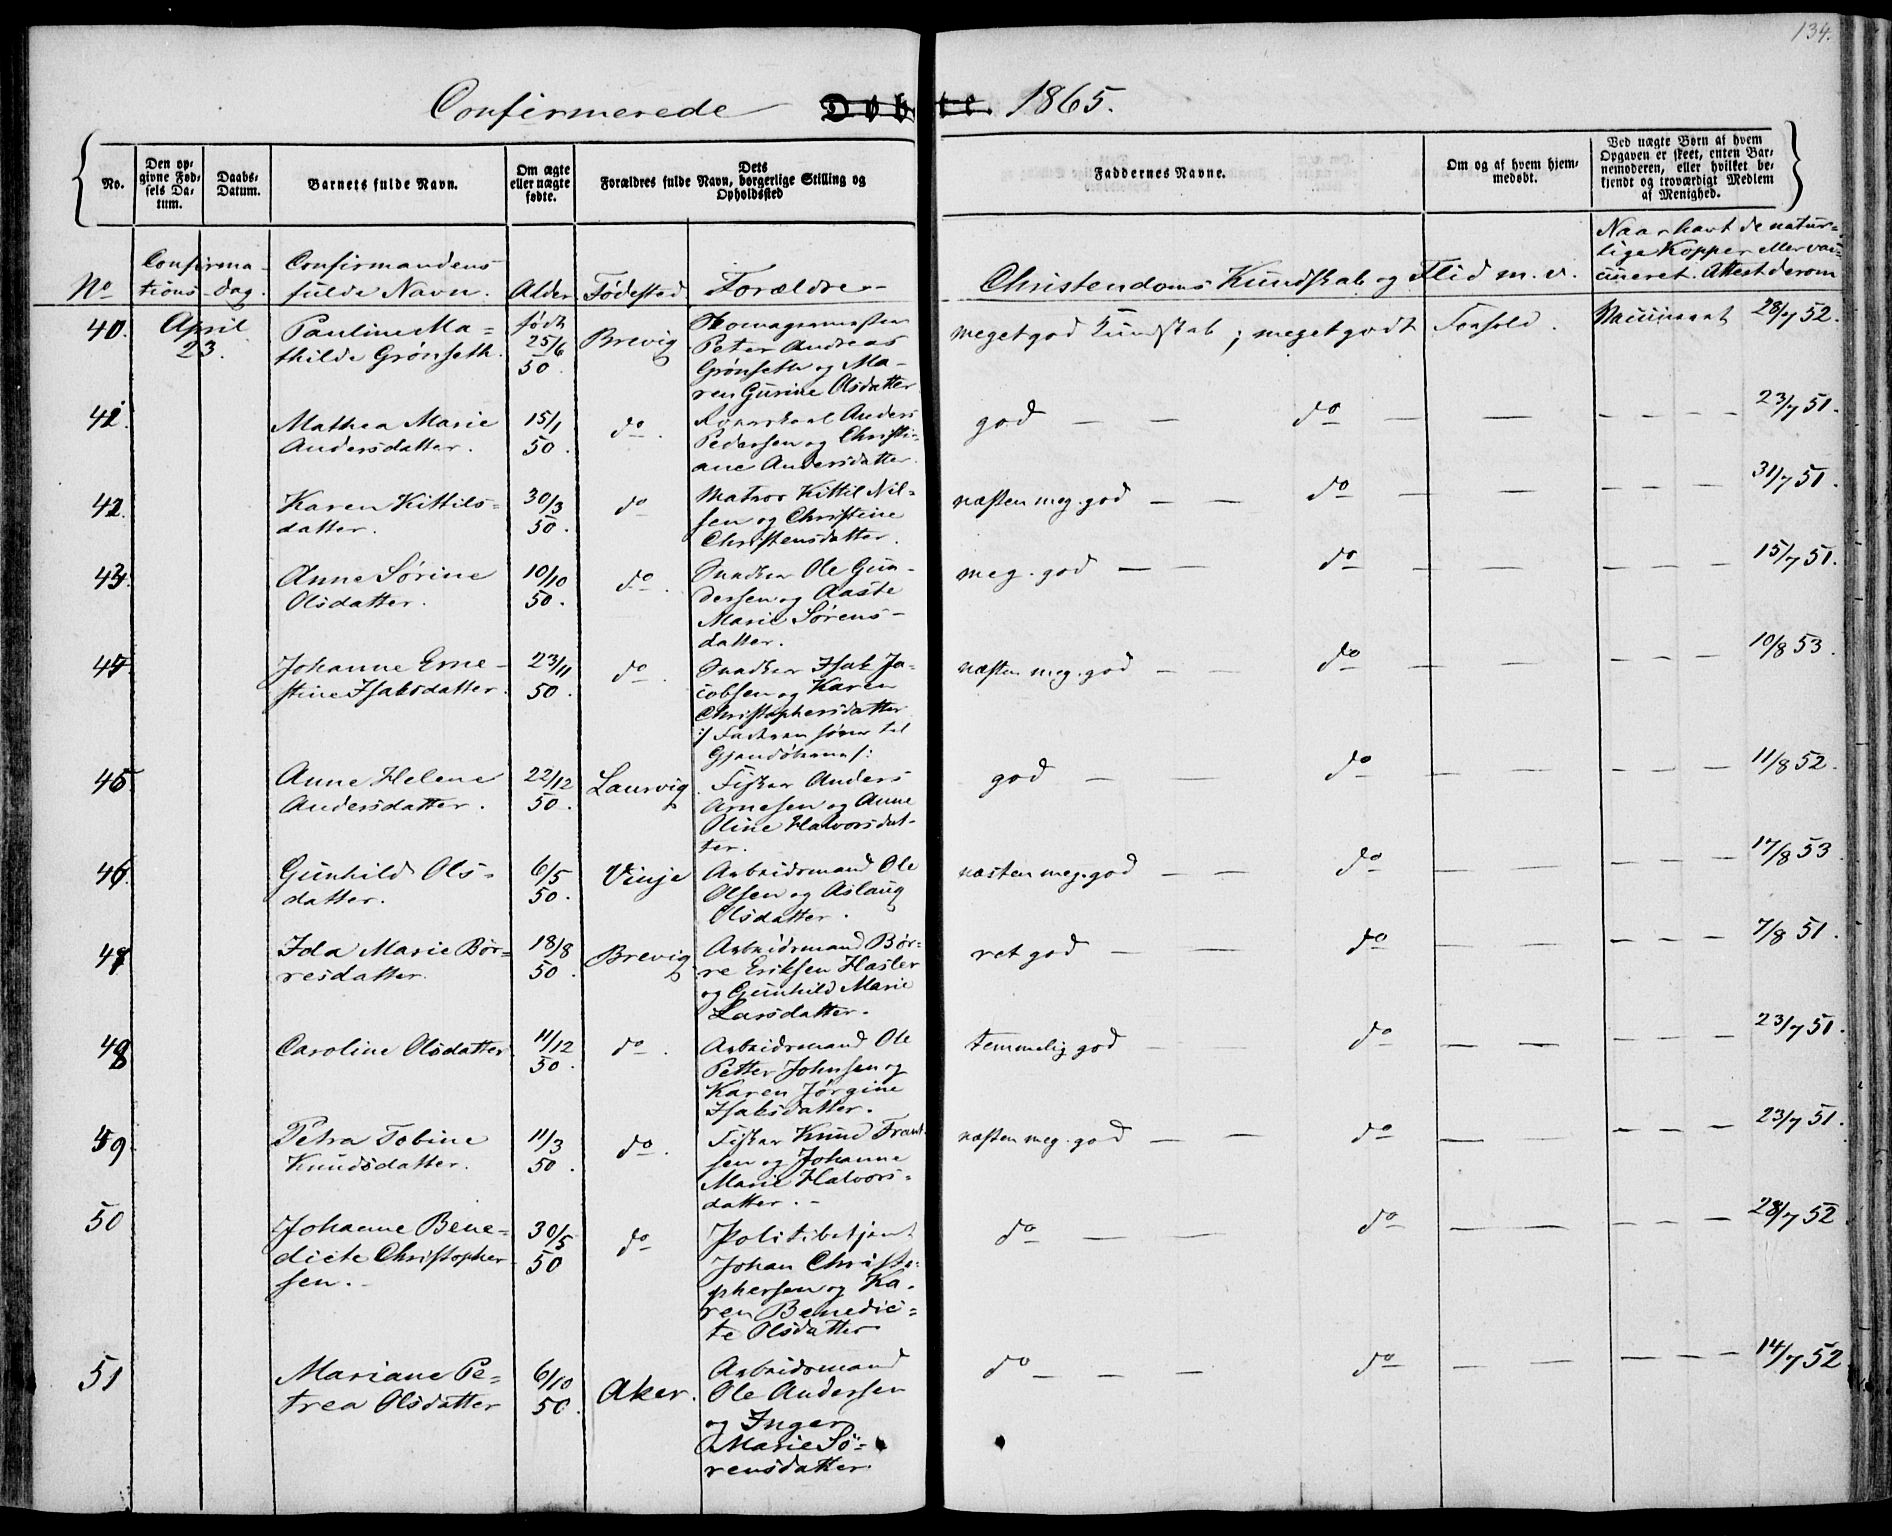 134.
Confirmerede Døbte. 1865.
No.
Den op-
givne Fød-
sels Da-
tum.
Daabs-
Datum.
Barnets fulde Navn.
Om ægte
eller uægte
fødte.
Dets
Forældres fulde Navn, borgerlige Stilling og
Opholdssted
Faddernes Navne.
Om og af hvem hjem-
medøbt.
Ved uægte Børn af hvem
Opgaven er skeet, enten Bar-
nemoderen, eller hvilket be-
kjendt og troværdigt Medlem
af Menighed.
No
Confirma-
tions dag.
Confirmandens
fulde Navn.
Alder
Fødested
Forældre
Christendoms Kundskab og Flid m. v.
Naar havt de natur-
lige Kopper eller vac-
cineret. Attest derom
40.
April
23.
Pauline Ma-
thilde Grønseth.
født
25/6
50.
Brevig
Peter Andreas
Grønseth og Ma-
ren Gurine Olsdatter
meget god Kundskab; meget godt Forhold.
Vaccineret 28/7 52.
41.
Mathea Marie
Andersdatter.
15/1
50.
do.
Anders
Pedersen og Christi-
ane Andersdatter.
god — — do — — — — — 23/7 51.
42.
Karen Kittils-
datter.
30/3
50.
do
Matros Kittil Nil-
sen og Christine
Christensdatter.
næsten meg. god — — do — — — — — 31/7 51.
43.
Anne Sørine
Olsdatter.
10/10
50.
do.
Snedker Ole Gun-
dersen og Aaste
Marie Sørens-
datter.
meg. god — — do — — — — — 15/7 51.
44.
Johanne Erne-
stine Isaksdatter.
23/11
50.
do.
Snedker Isak Ja-
cobsen og Karen
Christophersdatter
/: Faderen hører til
:/
næsten meg. god — — do — — — — — 10/8 53.
45.
Anne Helene
Andersdatter.
22/12
50.
Laurvig
Fisker Anders
Arnesen og Anne
Oline Halvorsdat-
ter.
god — — do — — — — — 11/8 52.
46.
Gunhild Ols-
datter.
6/5
50.
Vinje
Arbeidsmand Ole
Olsen og Aslaug
Olsdatter.
næsten meg. god — — do — — — — — 17/8 53
47.
Ida Marie Bør-
resdatter.
18/8
50.
Brevig
Arbeidsmand Bør-
re Eriksen Hasler
og Gunhild Marie
Larsdatter.
ret god — — do — — — — — 7/8 51.
48
Caroline Olsdatter
11/12
50.
do.
Arbeidsmand Ole
Petter Johnsen og
Karen Jørgine
Isaksdatter.
temmelig god — — do — — — — — 23/7 51.
49
Petra Tobine
Knudsdatter.
11/3
50.
do.
Fisker Knud Frant-
sen og Johanne
Marie Halvors-
datter.
næsten meg. god — — do — — — — — 23/7 51.
50
Johanne Bene-
dicte Christopher-
sen.
30/5
50
do
Politibetjent
Johan Christo-
phersen og Ka-
ren Benedic-
te Olsdatter
do — — — do — — — — — 28/7 52.
51
Mariane Pe-
trea Olsdatter
6/10
50.
Aker.
Arbeidsmand
Ole Andersen
og Inger
Marie Sø-
rensdatter.
do — — — do — — — — — 14/7 52